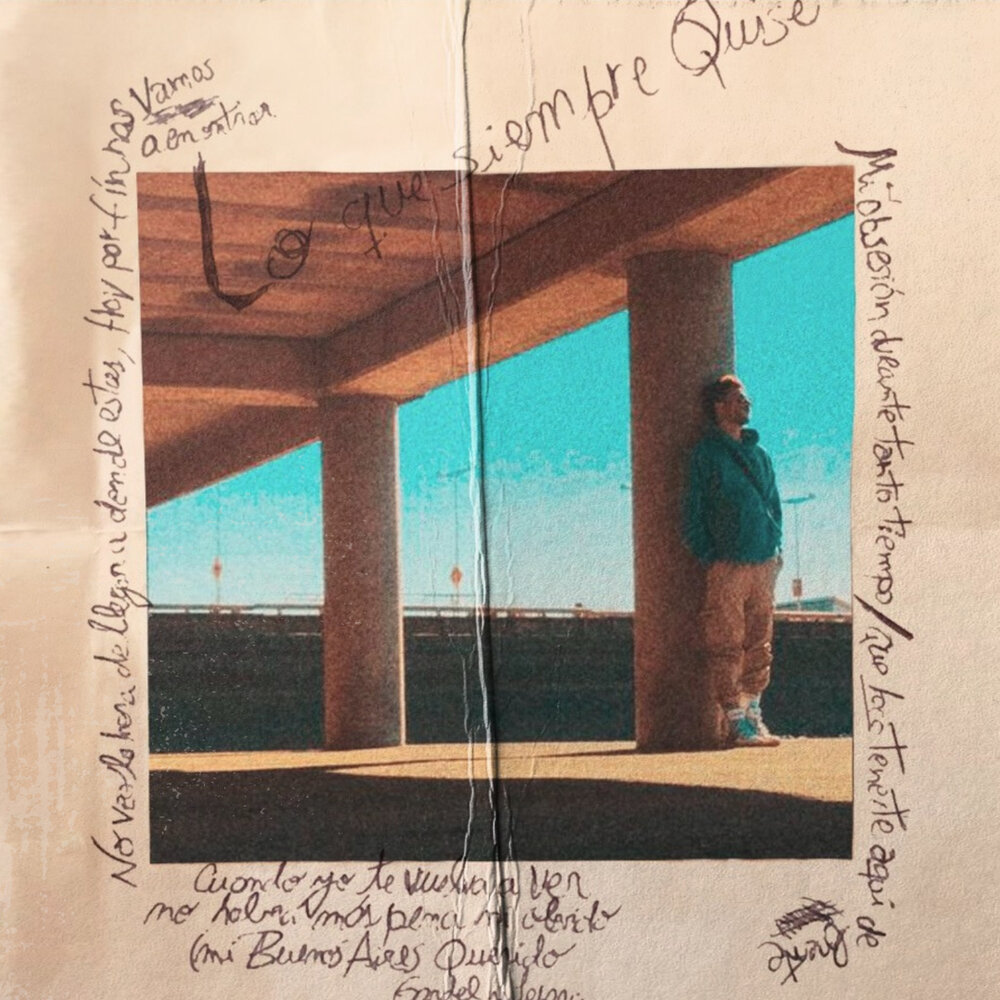 Lo que siempre Quise
No veas la hora de llegar a donde estas, Hoy por fín nos
Vamos
a encontrar
Mi obsesión durante tanto tiempo, que
tenerte aqui de
frente
Cuando yo te vuelva a ver
no habra más pena ni olvido
(mi Buenos Aires Querido